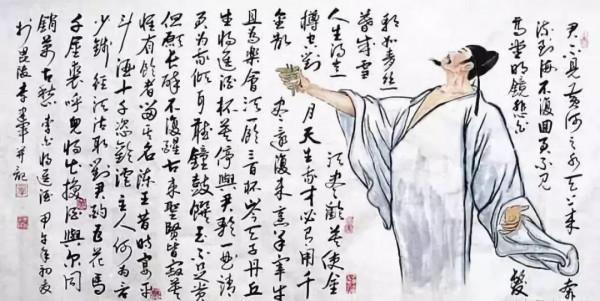 君不見黄河之水天上来 奔
流到海不復回君不見
高堂明鏡悲白 髮
朝如青丝
暮成雪
人生得意 须尽歡莫使金
樽空對 月天生我才必有用千
金散 尽還復来烹羊宰牛
且為樂會须一飲三百杯岑夫子丹丘
生将進酒杯莫停與君歌一曲請
君為我倾耳聽鐘鼓饌玉不足貴
但願长醉不復醒古来聖賢皆寂寞
惟有飲者留其名陈王昔時宴平
斗酒十千恣歡谑主人何為言
少錢径须沽取對君酌五花馬
千金裘呼兒将出换酒與尔同
銷萬古愁 李白将進酒 甲午年初夏
於毘陵李軍并記